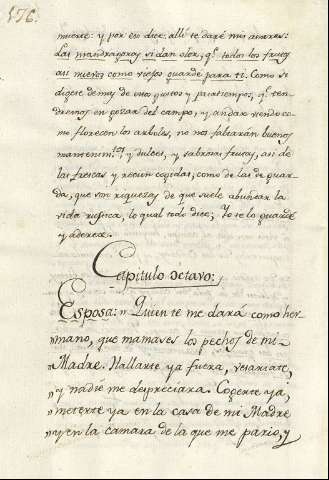 176.
muerte: y por eso dice: allí te daré mis amores:
Las mandragoras si dan olor, q.e todos los frutos
asi nuevos como viejos guarde para ti. Como si
digese demas de otros gustos y pasatiempos, q.e ten-
dremos en gozar del campo, y andar viendo co-
mo florecen los arboles, no nos faltarán buenos
mantenim.tos, y dulces, y sabrosas frutas, asi de
las frescas y recien cogidas, como de las de guar-
da, que son riquezas de que suele abundar la
vida rustica, lo qual todo dice, Yo te lo guardé
y aderece.
Capitulo octavo:
Esposa: "Quien te me dará como her-
mano, que mamases los pechos de mi
Madre. Hallarte ya fuera, besariate,
"y nadie me despreciara. Cogerte ya,
"meterte ya en la casa de mi Madre
"y en la camara de la que me pario, y